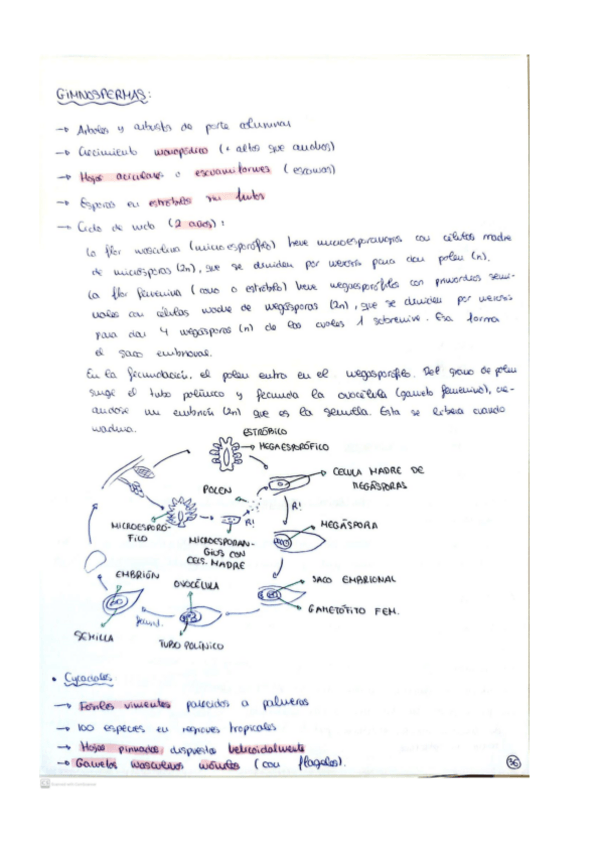 GIMNOSPERMAS:
→ Árboles y arbustos de porte columnar
→ Crecimiento monopódico (+ altos que anchos)
→ Hojas aciculares o escuamiformes (escamas)
→ Esporas en estróbilos sin frutos
→ Ciclo de vida (2 años):
La flor masculina (microesporófilo) tiene microesporangios con células madre
de micrósporas (2n), que se dividen por meiosis para dar polen (n).
La flor femenina (cono o estróbilo) tiene megaesporófilos con primordios semi-
nales con células madre de megásporas (2n), que se dividen por meiosis
para dar 4 megásporas (n) de las cuales 1 sobrevive. Esa forma
el saco embrional.
En la fecundación, el polen entra en el megasporófilo. Del grano de polen
surge el tubo polínico y fecunda la ovocélula (gameto femenino), cre-
andose un embrión (2n) que es la semilla. Esta se libera cuando
madura.
ESTRÓBILO
MEGAESPORÓFILO
CÉLULA MADRE DE
MEGÁSPORAS
POLEN
R!
R!
MICROESPORÓ-
FILO
MICROESPORAN-
GIOS CON
CELS. MADRE
MEGÁSPORA
EMBRIÓN
OVOCÉLULA
SACO EMBRIONAL
GAMETÓFITO FEM.
fecund.
SEMILLA
TUBO POLÍNICO
• Cycadales
→ Fósiles vivientes parecidos a palmeras
→ 100 especies en regiones tropicales
→ Hojas pinnadas dispuestas helicoidalmente
→ Gametos masculinos móviles (con flagelos).
36